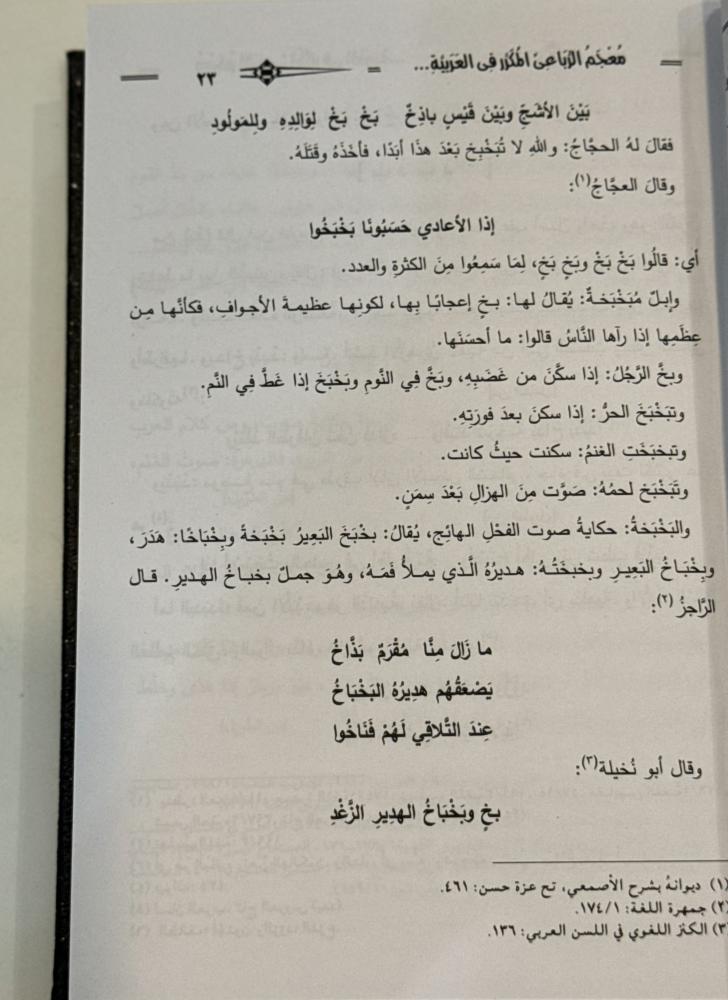 مُعْجَمُ الرُّبَاعِيِّ المُكَرَّرِ فِي العَرَبِيَّةِ...
٢٣
بَيْنَ الأشَجِّ وبَيْنَ قَيْسٍ باذِخٌ بَخْ بَخْ لِوَالِدِهِ وللِمَولُودِ
فقالَ لهُ الحجَّاجُ: واللهِ لا تُبَخْبِخ بَعْدَ هذَا أبَدًا، فأخَذَهُ وقَتَلَهُ.
وقالَ العجَّاجُ(١):
إذا الأعادي حَسَبُونَا بَخْبَخُوا
أي: قالُوا بَخْ بَخْ وبَخٍ بَخٍ، لِمَا سَمِعُوا مِنَ الكثرةِ والعدد.
وإبلٌ مُبَخْبَخةٌ: يُقالُ لها: بخٍ إعجابًا بِها، لكونِها عظيمةَ الأجوافِ، فكأنَّها مِن
عِظَمِها إذا رآها النَّاسُ قالوا: ما أحسَنَها.
وبخَّ الرَّجُلُ: إذا سكَّنَ من غَضَبِهِ، وبَخَّ فِي النَّومِ وبَخْبَخَ إذا غَطَّ فِي النَّمِ.
وتبَخْبَخَ الحرُّ: إذا سكنَ بعدَ فورَتِهِ.
وتبخبَختِ الغنمُ: سكنت حيثُ كانت.
وتَبَخْبَخ لحمُهُ: صَوَّت مِنَ الهزالِ بَعْدَ سِمَنٍ.
والبَخْبَخةُ: حكايةُ صوت الفحْلِ الهائِجِ، يُقالُ: بخْبَخَ البَعِيرُ بَخْبَخةً وبِخْبَاخًا: هَدَرَ،
وبِخْبَاخُ البَعِيرِ وبخبختُهُ: هديرُهُ الَّذي يملأُ فَمَهُ، وهُوَ جملٌ بخباخُ الهديرِ. قال
الرَّاجزُ (٢):
ما زَالَ مِنَّا مُقْرَمٌ بَذَّاخُ
يَصْعَقُهُم هديرُهُ البَخْبَاخُ
عِندَ التَّلاقِي لَهُمْ فَنَاخُوا
وقال أبو نُخيلة(٣):
بخٍ وبَخْبَاخُ الهديرِ الزَّغْدِ
(١) ديوانهُ بشرح الأصمعي، تح عزة حسن: ٤٦١.
(٢) جمهرة اللغة: ١/١٧٤.
(٣) الكنز اللغوي في اللسن العربي: ١٣٦.